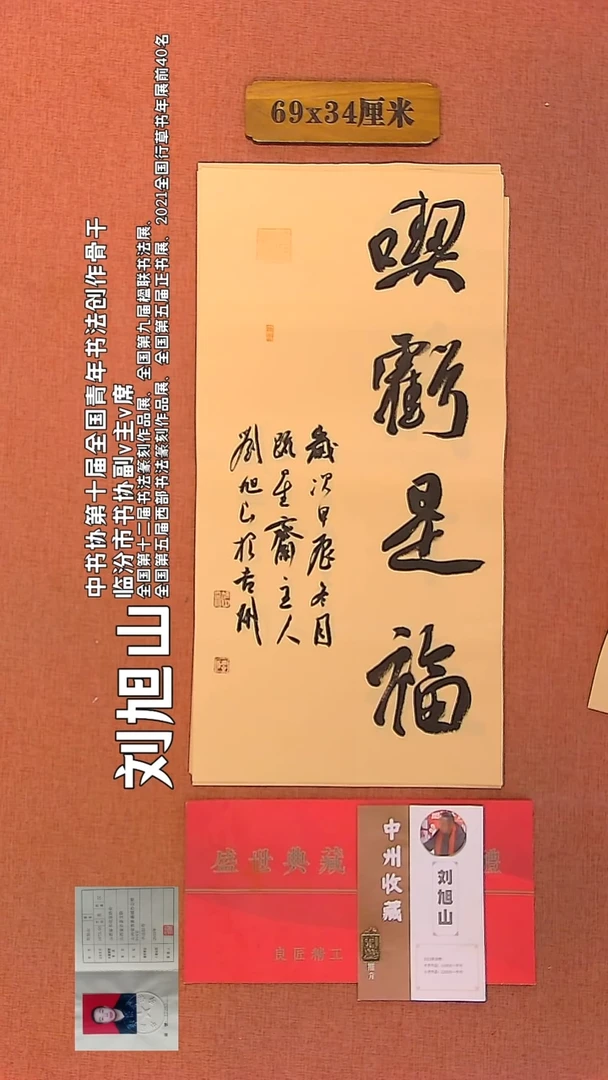 69x34厘米
喫虧是福
歲次甲辰冬月
臨星齋主人
劉旭山於吉州
刘旭山
中书协第十届全国青年书法创作骨干
临汾市书协副v主v席
全国第十二届书法篆刻作品展、全国第九届楹联书法展、
全国第五届西部书法篆刻作品展、全国第五届正书展、2021全国行草书年展前40名
盛世典藏
良匠精工
中州收藏
刘旭山